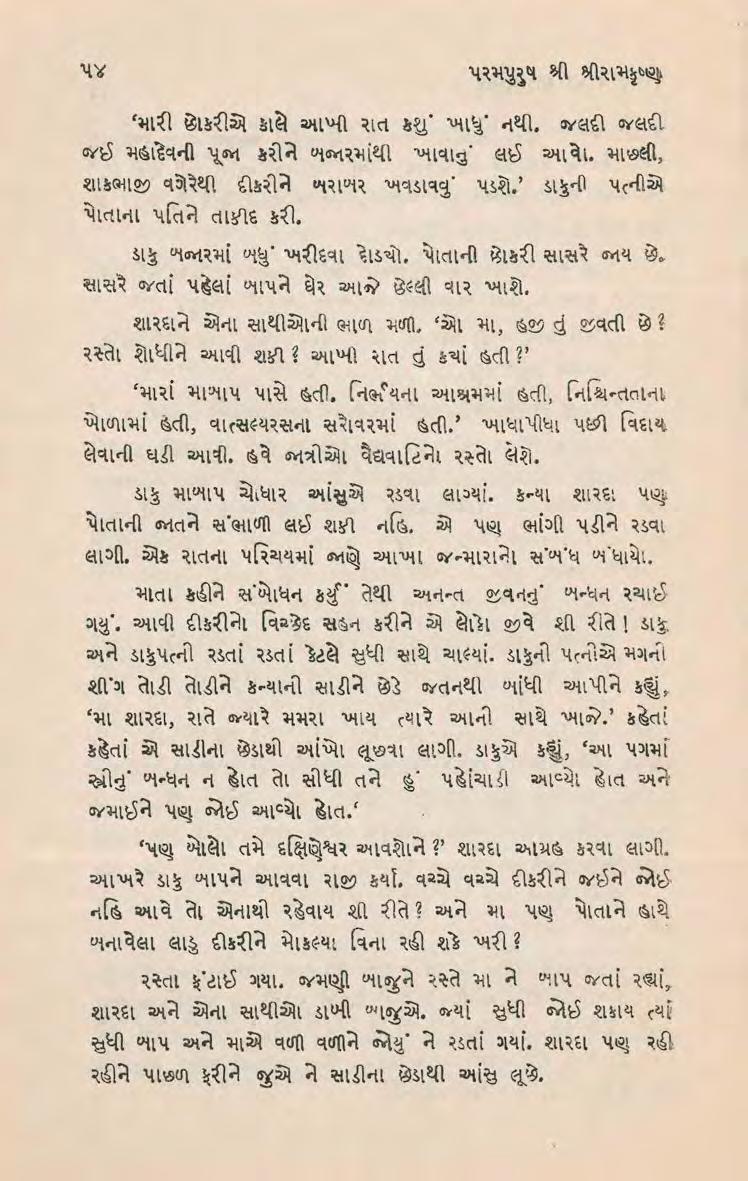 ૫૪ પરમપુરુષ શ્રી શ્રીરામકૃષ્ણ
‘મારી છોકરીએ કાલે આખી રાત કશું ખાધું નથી. જલદી જલદી
જઈ મહાદેવની પૂજા કરીને બજારમાંથી ખાવાનું લઈ આવો. માછલી,
શાકભાજી વગેરેથી દીકરીને બરાબર ખવડાવવું પડશે.’ ડાકુની પત્નીએ
પોતાના પતિને તાકીદ કરી.
ડાકુ બજારમાં બધું ખરીદવા દોડ્યો. પોતાની છોકરી સાસરે જાય છે.
સાસરે જતાં પહેલાં બાપને ઘેર આજે છેલ્લી વાર ખાશે.
શારદાને એના સાથીઓની ભાળ મળી. ‘ઓ મા, હજી તું જીવતી છે?
રસ્તો શોધીને આવી શકી? આખી રાત તું ક્યાં હતી?’
‘મારાં માબાપ પાસે હતી. નિર્ભયના આશ્રમમાં હતી, નિશ્ચિન્તતાના
ખોળામાં હતી, વાત્સલ્યરસના સરોવરમાં હતી.’ ખાધાપીધા પછી વિદાય
લેવાની ઘડી આવી. હવે જાત્રીઓ વૈદ્યવાટિનો રસ્તો લેશે.
ડાકુ માબાપ ચોધાર આંસુએ રડવા લાગ્યાં. કન્યા શારદા પણ
પોતાની જાતને સંભાળી લઈ શકી નહિ. એ પણ ભાંગી પડીને રડવા
લાગી. એક રાતના પરિચયમાં જાણે આખા જન્મારાનો સંબંધ બંધાયો.
માતા કહીને સંબોધન કર્યું તેથી અનન્ત જીવનનું બન્ધન રચાઈ
ગયું. આવી દીકરીનો વિચ્છેદ સહન કરીને એ લોકો જીવે શી રીતે! ડાકુ
અને ડાકુપત્ની રડતાં રડતાં કેટલે સુધી સાથે ચાલ્યાં. ડાકુની પત્નીએ મગની
શીંગ તોડી તોડીને કન્યાની સાડીને છેડે જતનથી બાંધી આપીને કહ્યું,
‘મા શારદા, રાતે જ્યારે મમરા ખાય ત્યારે આની સાથે ખાજે.’ કહેતાં
કહેતાં એ સાડીના છેડાથી આંખો લૂછવા લાગી. ડાકુએ કહ્યું, ‘આ પગમાં
સ્ત્રીનું બન્ધન ન હોત તો સીધી તને હું પહોંચાડી આવ્યો હોત અને
જમાઈને પણ જોઈ આવ્યો હોત.‘
‘પણ બોલો તમે દક્ષિણેશ્વર આવશોને?’ શારદા આગ્રહ કરવા લાગી.
આખરે ડાકુ બાપને આવવા રાજી કર્યા. વચ્ચે વચ્ચે દીકરીને જઈને જોઈ
નહિ આવે તો એનાથી રહેવાય શી રીતે? અને મા પણ પોતાને હાથે
બનાવેલા લાડુ દીકરીને મોકલ્યા વિના રહી શકે ખરી?
રસ્તા ફંટાઈ ગયા. જમણી બાજુને રસ્તે મા ને બાપ જતાં રહ્યાં,
શારદા અને એના સાથીઓ ડાબી બાજુએ. જ્યાં સુધી જોઈ શકાય ત્યાં
સુધી બાપ અને માએ વળી વળીને જોયું ને રડતાં ગયાં. શારદા પણ રહી
રહીને પાછળ ફરીને જુએ ને સાડીના છેડાથી આંસુ લૂછે.